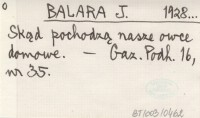 o
BALARA J. 1928...
Skąd pochodzą nasze owce
domowe. — Gaz. Podh. 16,
nr 35.
BT/003/0462